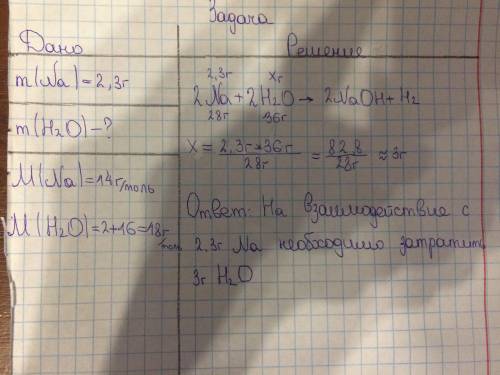 Задача
Дано
m(Na)=2,3г
m(H₂O)-?
M(Na)=14г/моль
M(H₂O)=2+16=18г/моль
Решение
2,3г xг
2Na+2H₂O→2NaOH+H₂
28г 36г
X=2,3г*36г/28г=82,8/28г≈3г
Ответ: На взаимодействие с
2,3г Na необходимо затратить
3г H₂O